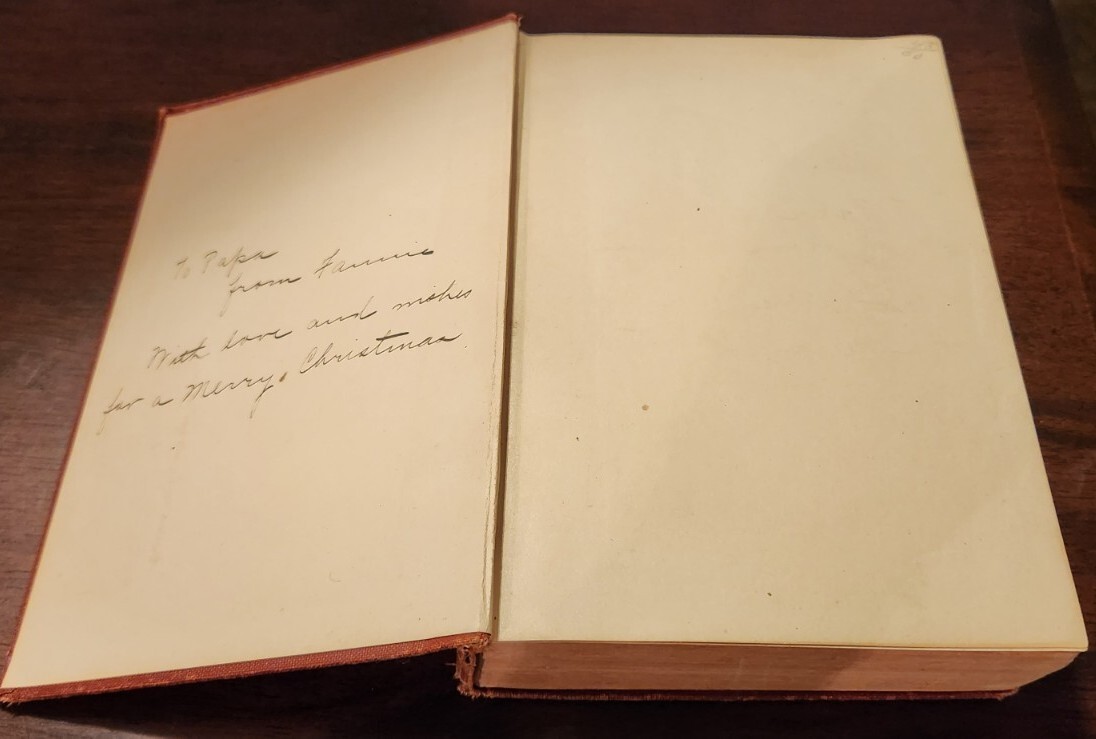 To Papa
from Fannie
With love and wishes
for a Merry Christmas.